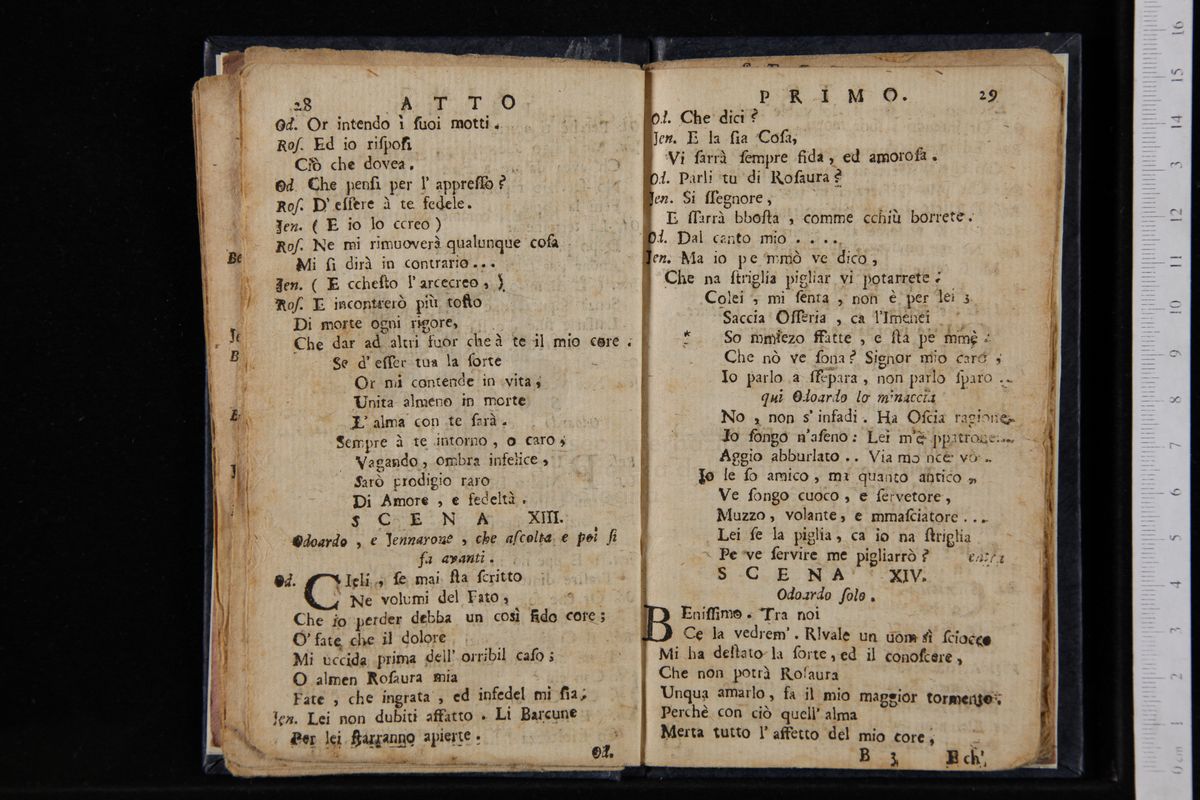 28 ATTO
Od. Or intendo i ſuoi motti.
Roſ. Ed io riſpoſi
Ciò che dovea.
Od. Che penſi per l' appreſſo?
Roſ. D' eſſere à te fedele.
Jen. ( E io lo ccreo )
Roſ. Ne mi rimuoverà qualunque coſa
Mi ſi dirà in contrario...
Jen. ( E ccheſto l' arcecreo, )
Roſ. E incontrerò più toſto
Di morte ogni rigore,
Che dar ad altri fuor che à te il mio core.
Se d' eſſer tua la ſorte
Or mi contende in vita,
Unita almeno in morte
L' alma con te ſarà.
Sempre à te intorno, o caro,
Vagando, ombra infelice,
Sarò prodigio raro
Di Amore, e fedeltà.
SCENA XIII.
Odoardo, e Jennarone, che aſcolta e poi ſi
fa avanti.
Od. CIeli, ſe mai ſta ſcritto
Ne volumi del Fato,
Che io perder debba un così fido core;
O' fate che il dolore
Mi uccida prima dell' orribil caſo;
O almen Roſaura mia
Fate, che ingrata, ed infedel mi ſia.
Jen. Lei non dubiti affatto. Li Barcune
Per lei ſtarranno apierte.
Od.
PRIMO. 29
Od. Che dici?
Jen. E la ſia Coſa,
Vi ſarrà ſempre fida, ed amoroſa.
Od. Parli tu di Roſaura?
Jen. Si ſſegnore,
E ſſarrà bboſta, comme cchiù borrete.
Od. Dal canto mio ....
Jen. Ma io pe mmò ve dico,
Che na ſtriglia pigliar vi potarrete.
Colei, mi ſenta, non è per lei;
Saccia Oſſeria, ca l'Imenei
* So mmiezo ffatte, e ſta pe mmè:
Che nò ve ſona? Signor mio caro,
Io parlo a ſſepara, non parlo ſparo ..
qui Odoardo lo minaccia
No, non s' infadi. Ha Oſcia ragione
Io ſongo n'aſeno: Lei m'è ppatrone...
Aggio abburlato .. Via mo nce vo ..
Io le ſo amico, ma quanto antico,
Ve ſongo cuoco, e ſervetore,
Muzzo, volante, e mmaſciatore ...
Lei ſe la piglia, ca io na ſtriglia
Pe ve ſervire me pigliarrò? entra
SCENA XIV.
Odoardo ſolo.
BEniſſimo. Tra noi
Ce la vedrem'. Rivale un uom sì ſciocco
Mi ha deſtato la ſorte, ed il conoſcere,
Che non potrà Roſaura
Unqua amarlo, fa il mio maggior tormento;
Perchè con ciò quell' alma
Merta tutto l' affetto del mio core;
B 3 Ech'